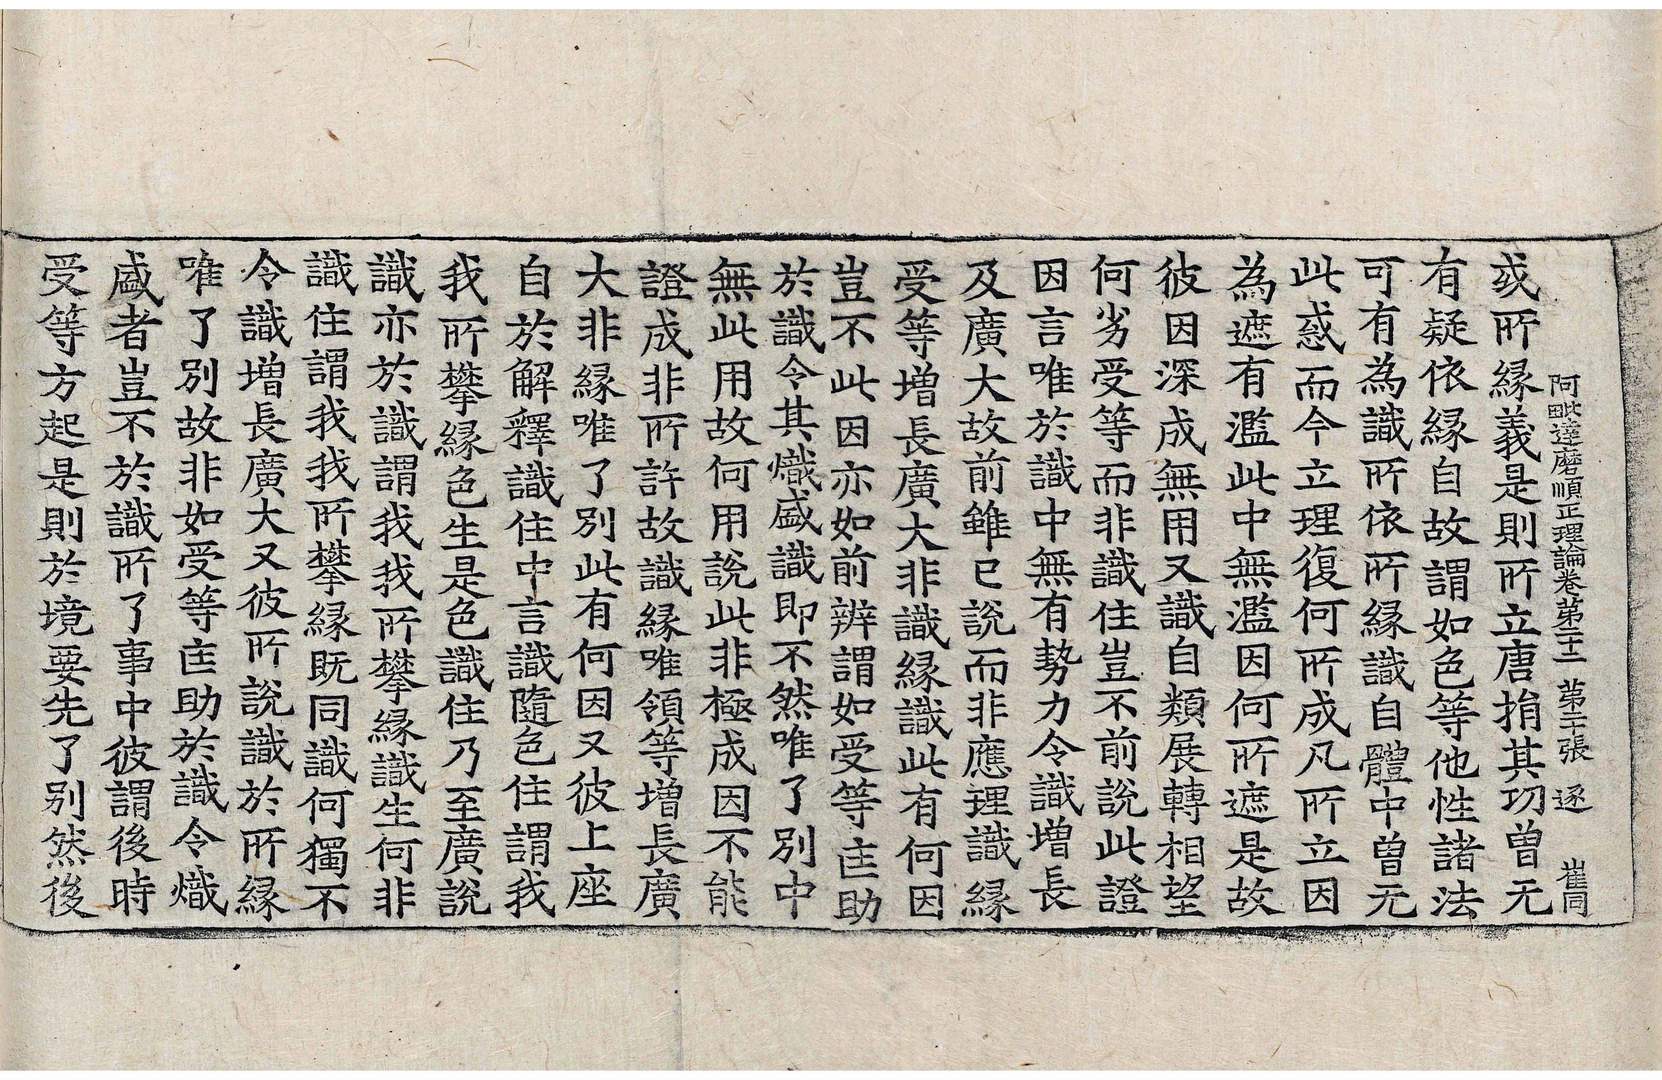 阿毗達磨順正理論卷第二十二 第二十張 逐 崔同
或所緣義是則所立唐捐其功曾无
有疑依緣自故謂如色等他性諸法
可有為識所依所緣識自體中曾无
此惑而今立理復何所成凡所立因
為遮有濫此中無濫因何所遮是故
彼因深成無用又識自類展轉相望
何劣受等而非識住豈不前說此證
因言唯於識中無有勢力令識增長
及廣大故前雖已說而非應理識緣
受等增長廣大非識緣識此有何因
豈不此因亦如前辨謂如受等㽵助
於識令其熾盛識即不然唯了別中
無此用故何用說此非極成因不能
證成非所許故識緣唯領等增長廣
大非緣唯了別此有何因又彼上座
自於解釋識住中言識隨色住謂我
我所攀緣色生是色識住乃至廣說
識亦於識謂我我所攀緣識生何非
識住謂我我所攀緣既同識何獨不
令識增長廣大又彼所說識於所緣
唯了別故非如受等㽵助於識令熾
盛者豈不於識所了事中彼謂後時
受等方起是則於境要先了別然後